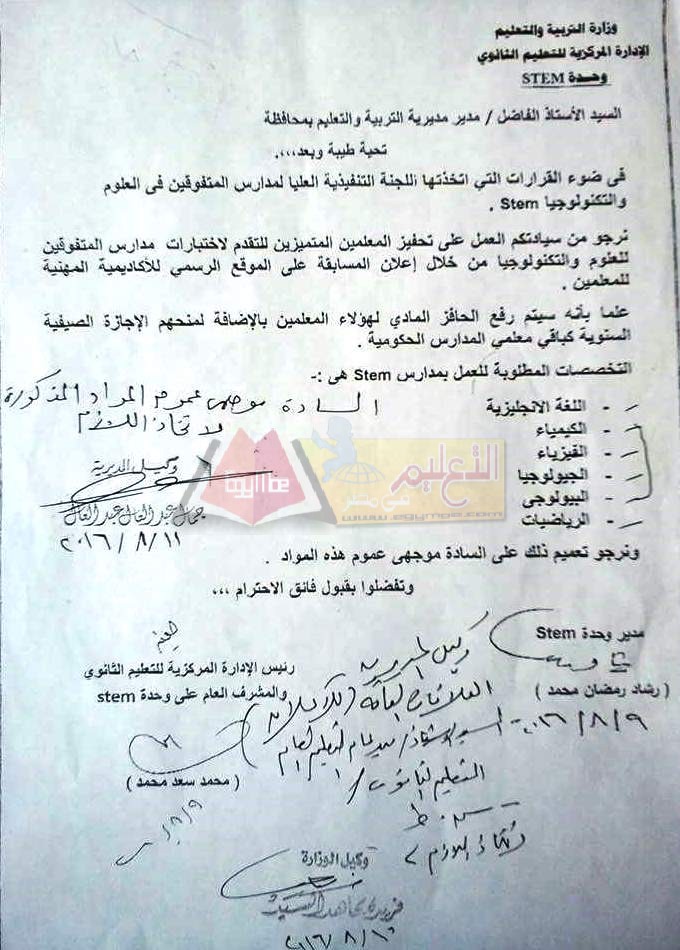 وزارة التربية والتعليم
الإدارة المركزية للتعليم الثانوي
وحدة STEM
السيد الأستاذ الفاضل / مدير مديرية التربية والتعليم بمحافظة
تحية طيبة وبعد،،،.
فى ضوء القرارات التي اتخذتها اللجنة التنفيذية العليا لمدارس المتفوقين فى العلوم
والتكنولوجيا Stem .
نرجو من سيادتكم العمل على تحفيز المعلمين المتميزين للتقدم لاختبارات مدارس المتفوقين
للعلوم والتكنولوجيا من خلال إعلان المسابقة على الموقع الرسمي للأكاديمية المهنية
للمعلمين .
علما بأنه سيتم رفع الحافز المادي لهؤلاء المعلمين بالإضافة لمنحهم الإجازة الصيفية
السنوية كباقي معلمي المدارس الحكومية .
التخصصات المطلوبة للعمل بمدارس Stem هى :-
- اللغة الانجليزية
- الكيمياء
- الفيزياء
- الجيولوجيا
- البيولوجى
- الرياضيات
السادة موجهى عموم المواد المذكورة
لاتخاذ اللازم
وكيل المديرية
جمال عبدالعال عبدالعال
٢٠١٦/٨/١١
التعليم
فى مصر
www.egymoe.com
ونرجو تعميم ذلك على السادة موجهى عموم هذه المواد .
وتفضلوا بقبول فائق الاحترام ،،،
مدير وحدة Stem
( رشاد رمضان محمد )
٢٠١٦/٨/٩
رئيس الإدارة المركزية للتعليم الثانوي
والمشرف العام على وحدة stem
( محمد سعد محمد )
وكيل المديرية
العلاقات العامة
التعليم الثانوى
وكيل الوزارة
٢٠١٦/٨/١٠